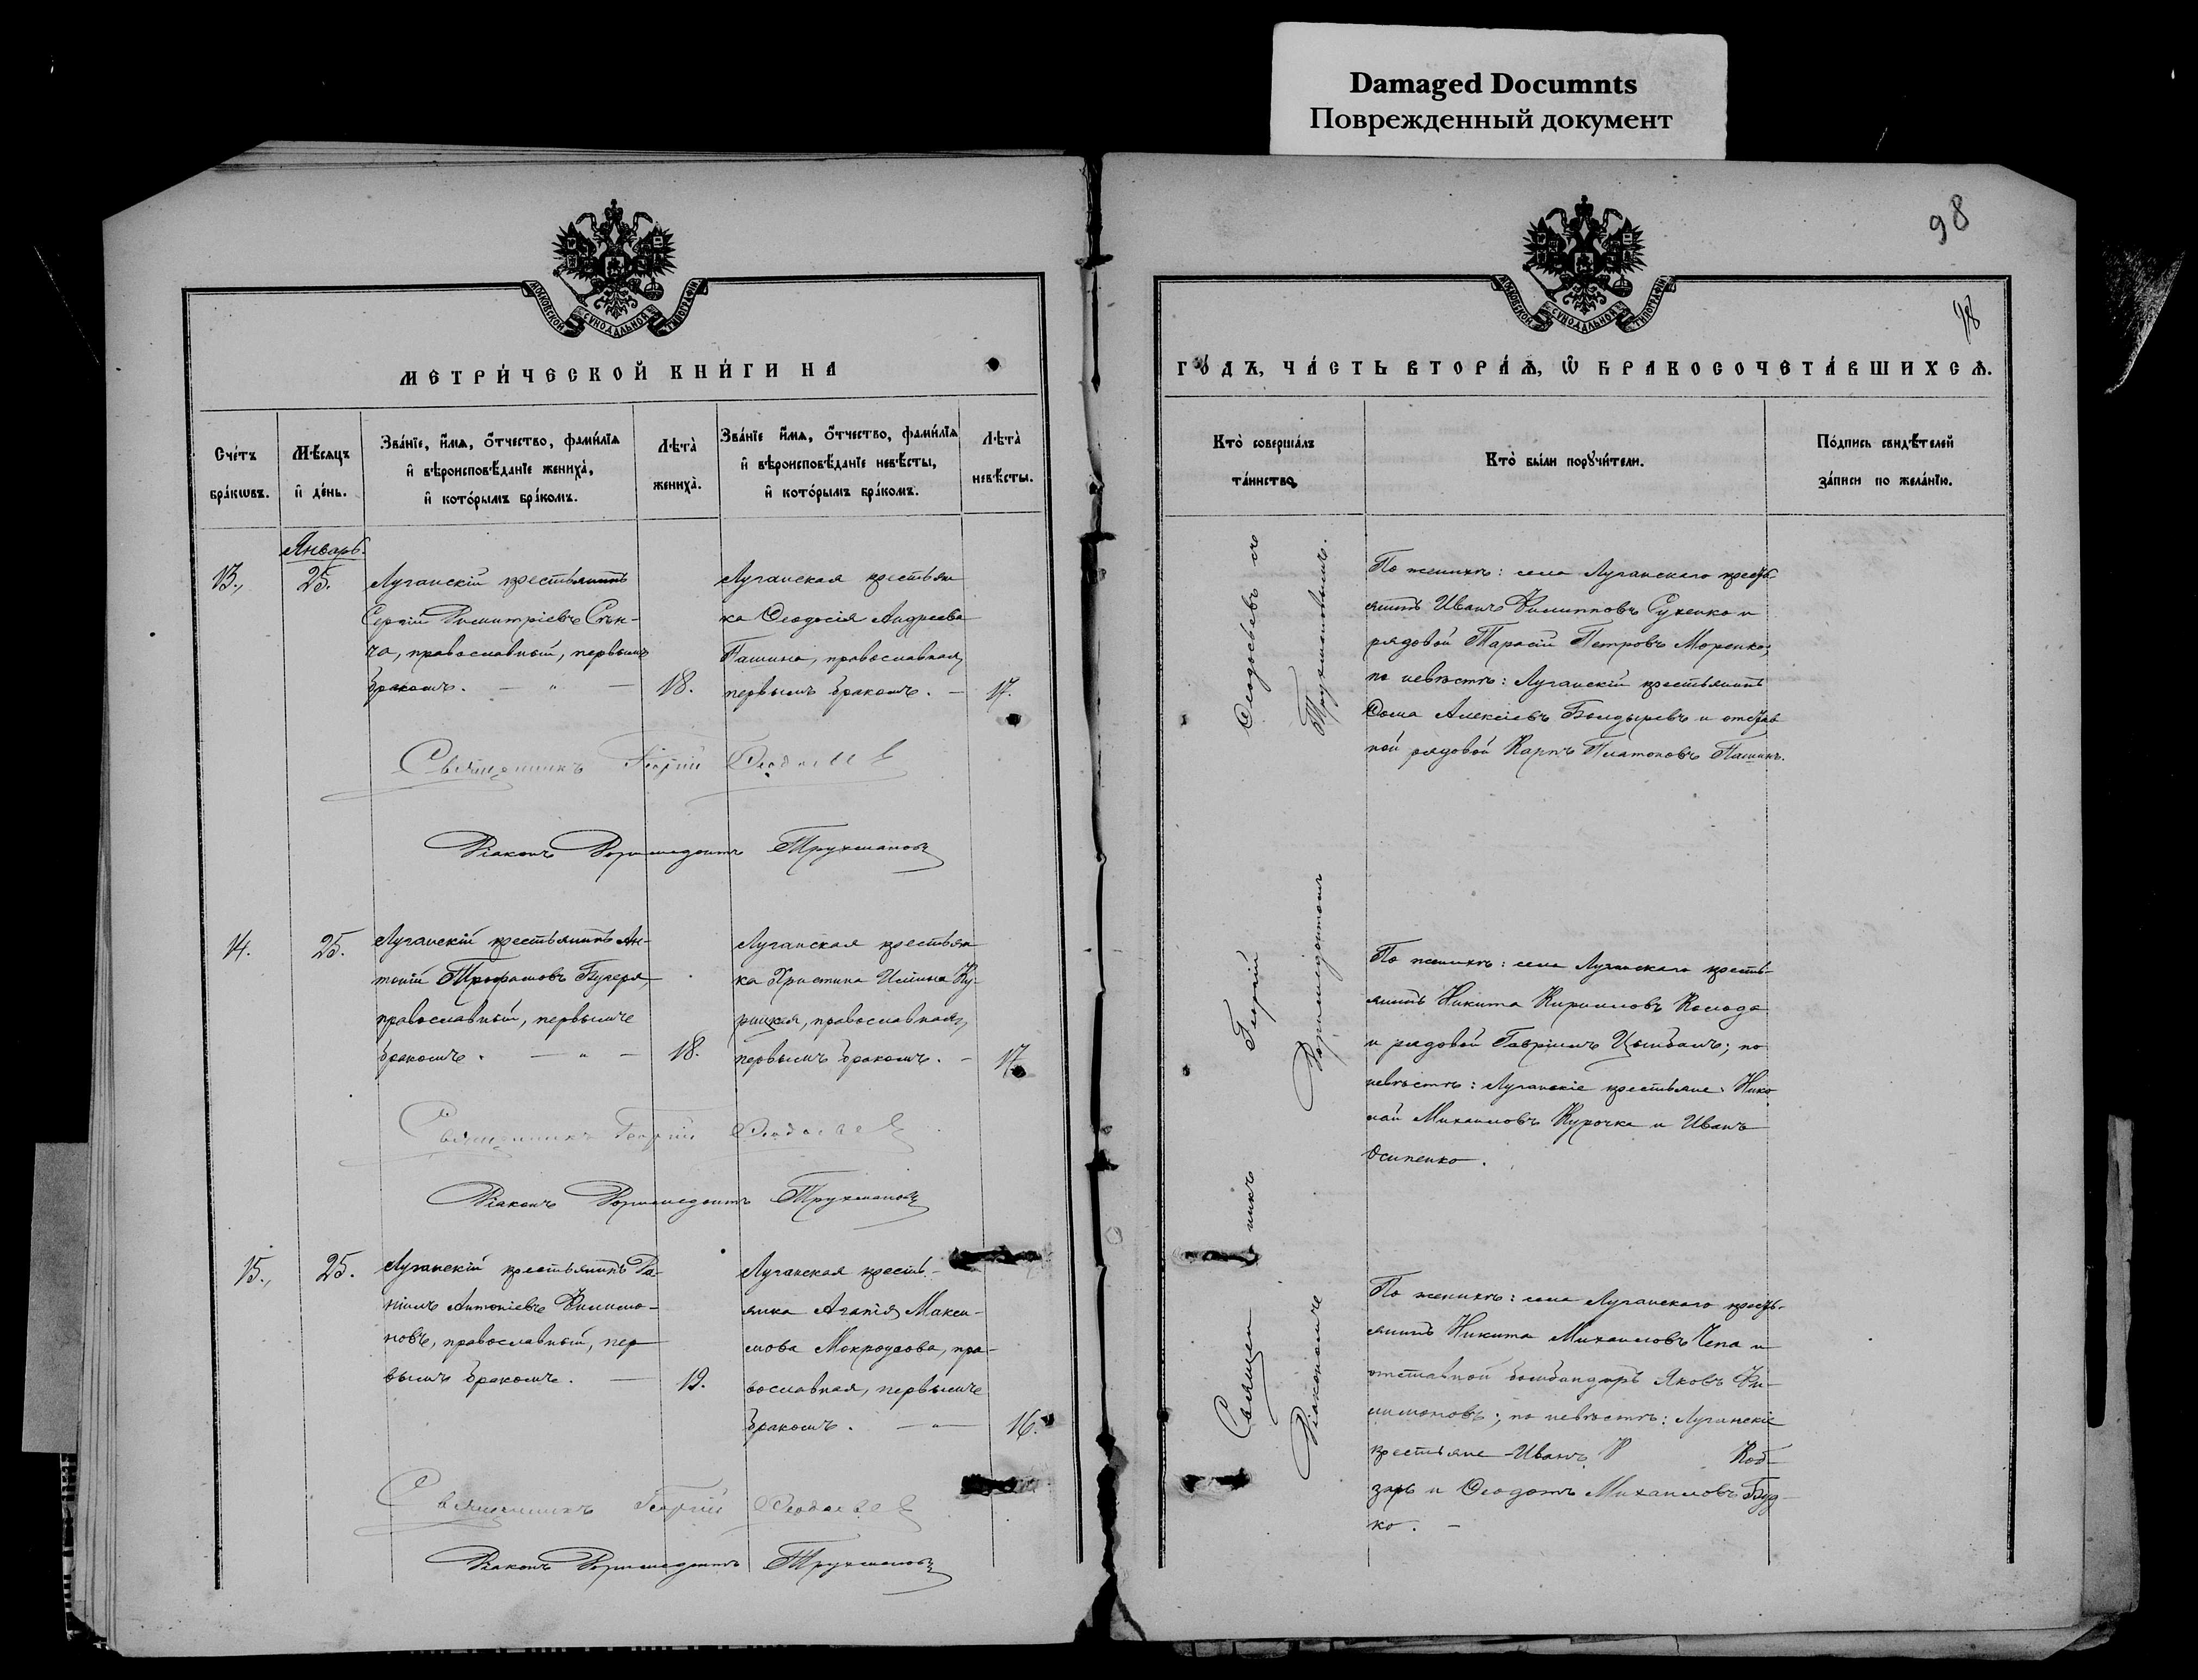 Damaged Documnts
Поврежденный документ
98
МОСКОВСКОЙ СѴНОДАЛЬНОЙ ТИПОГРАФІИ
МЕТРИ́ЧЕСКОЙ КНИ́ГИ НА
Сче́тъ бра́кωвъ.
Мѣ́сяцъ и҆ де́нь.
Зва́нїе, и҆́мѧ, ѻ҆́тчество, фами́лїѧ
и҆ вѣроисповѣ́данїе жениха̀,
и҆ кото́рымъ бра́комъ.
Лѣ́та̀ жениха̀.
Зва́нїе и҆́мѧ, ѻ҆́тчество, фами́лїѧ
и҆ вѣроисповѣ́данїе невѣ́сты,
и҆ кото́рымъ бра́комъ.
Лѣ́та̀ невѣ́сты.
Январь.
13.,
25.
Луганскій крестьянинъ
Сергій Димитріевъ Сѣн-
ча, православный, первымъ
бракомъ. — " —
18.
Луганская крестьян
ка Ѳеодосія Андреева
Пашина, православная,
первымъ бракомъ. —
17.
Священникъ Георгій Ѳеодосьевъ
Діаконъ Дормидонтъ Трухмановъ
14.
25.
Луганскій крестьянинъ Ан-
тоній Трофимовъ Бугеря,
православный, первымъ
бракомъ. — " —
18.
Луганская крестьян
ка Христина Ильина Ку-
рицкая, православная,
первымъ бракомъ. —
17.
Священникъ Георгій Ѳеодосьевъ
Діаконъ Дормидонтъ Трухмановъ
15.,
25.
Луганскій крестьянинъ Да-
ніилъ Антоніевъ Филимо-
новъ, православный, пер
вымъ бракомъ. —
19.
Луганская кресть-
янка Агапія Макси-
мова Мокроусова, пра-
вославная, первымъ
бракомъ. — " —
16.
Священникъ Георгій Ѳеодосьевъ
Діаконъ Дормидонтъ Трухмановъ
98
МОСКОВСКОЙ СѴНОДАЛЬНОЙ ТИПОГРАФІИ
ГО́ДЪ, ЧА́СТЬ ВТОРА́Ѧ, Ѽ БРАКОСОЧЕТА́ВШИХСѦ.
Кто̀ соверша́лъ
та́инство.
Кто̀ бы́ли порꙋчи́тели.
По́дпись свидѣ́телей
за́писи по жела́нїю.
Священникъ Георгій Ѳеодосьевъ съ
Діакономъ Дормидонтомъ Трухмановымъ.
По женихѣ: села Луганскаго кресть
янинъ Иванъ Филипповъ Сухенко и
рядовой Тарасій Петровъ Моренко;
по невѣстѣ: Луганскій крестьянинъ
Ѳома Алексіевъ Болдыревъ и отстав
ной рядовой Карпъ Платоновъ Пашинъ.
По женихѣ: села Луганскаго кресть-
янинъ Никита Кирилловъ Колода
и рядовой Гавріилъ Цымбалъ; по
невѣстѣ: Луганскіе крестьяне: Нико
лай Михаиловъ Курочка и Иванъ
Осипенко.
По женихѣ: села Луганскаго кресть-
янинъ Никита Михаиловъ Чепа и
отставной бомбандиръ Яковъ Фи-
лимоновъ; по невѣстѣ: Луганскіе
крестьяне – Иванъ Коб-
зарь и Ѳеодотъ Михаиловъ Буд-
ко. —